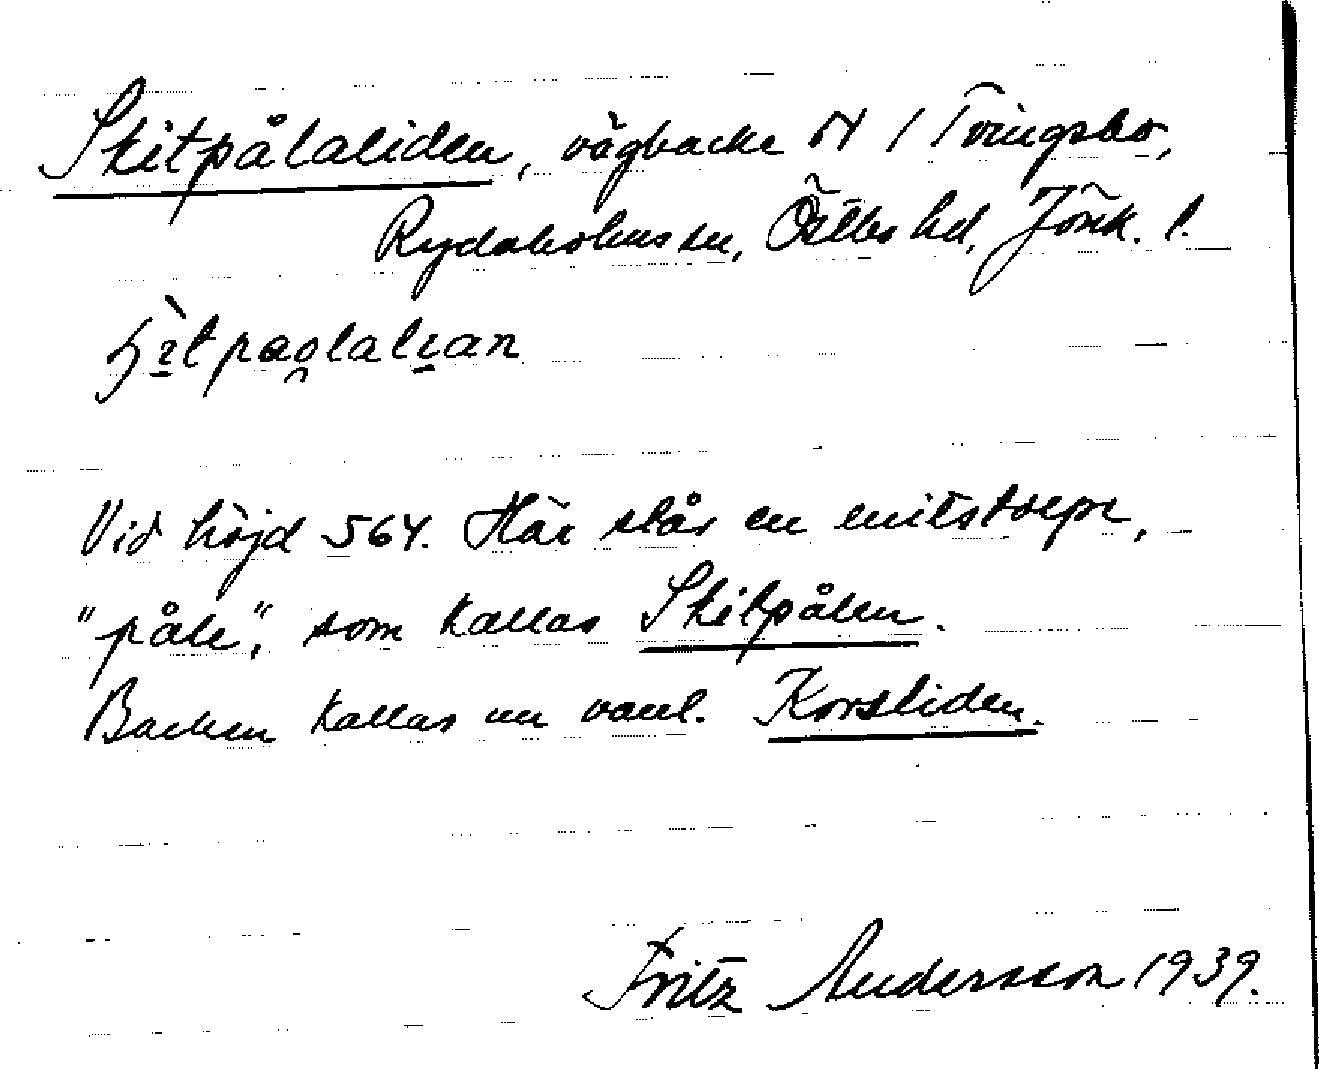 Skitpålaliden, vägbacke N / Tvingsbo,
Rydaholms sn, Östbo hd, Jönk. l.
Vid höjd 564. Här står en milstolpe,
"påle", som kallas Skitpålen.
Backen kallas nu vanl. Korsliden.
Fritz Andersson 1939.